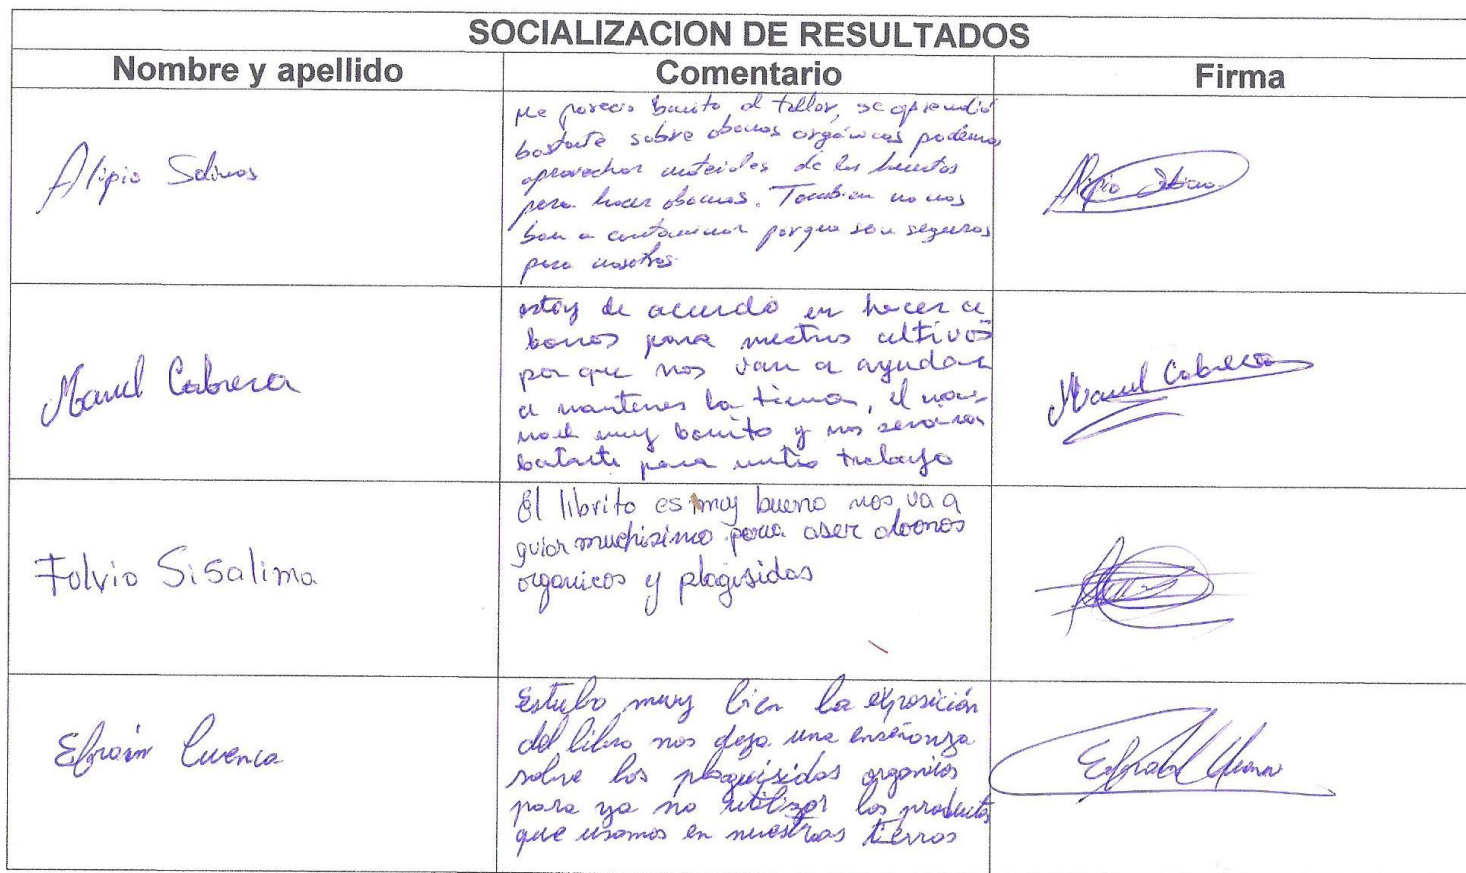 SOCIALIZACION DE RESULTADOS
Nombre y apellido Comentario Firma
Alipio Salinas
Me parecio bonito el taller, se aprendió
bastante sobre abonos orgánicos podemos
aprovechar materiales de las huertas
para hacer abonos. Tambien no nos
ban a contaminar porque son seguros
para nosotros
Alipio Salinas
Manuel Cabrera
estoy de acuerdo en hacer a
bonos para nuestros cultivos
por que nos van a ayudar
a mantener la tierra, el
muy bonito y nos servira
para trabajo
Manuel Cabrera
Folvio Sisalima
El librito es muy bueno nos va a
guiar muchisimo para aser abonos
organicos y plagisidas
Efraín Cuenca
Estubo muy bien la exposición
del libro nos deja una enseñanza
sobre los plaguisidas organicos
para ya no utilizar los productos
que usamos en nuestras tierras